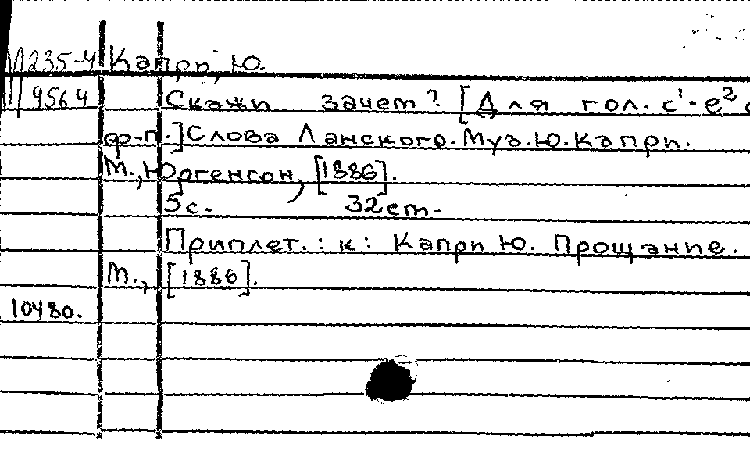 М235-4 Капри, Ю.
9564 Скажи зачем? [Для гол. c¹-e²
ф-п.] Слова Ланского. Муз. Ю. Капри.
М., Юргенсон, [1886].
5с. 32 см.
Приплет.: к: Капри Ю. Прощание.
М., [1886].
10480.